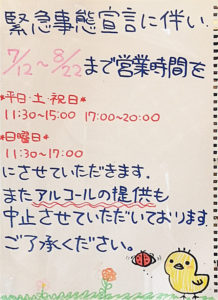 緊急事態宣言に伴い、
7/12〜8/22まで営業時間を
*平日・土・祝日*
11:30〜15:00 17:00〜20:00
*日曜日*
11:30〜17:00
にさせていただきます.
またアルコールの提供も
中止させていただいております.
ご了承ください。